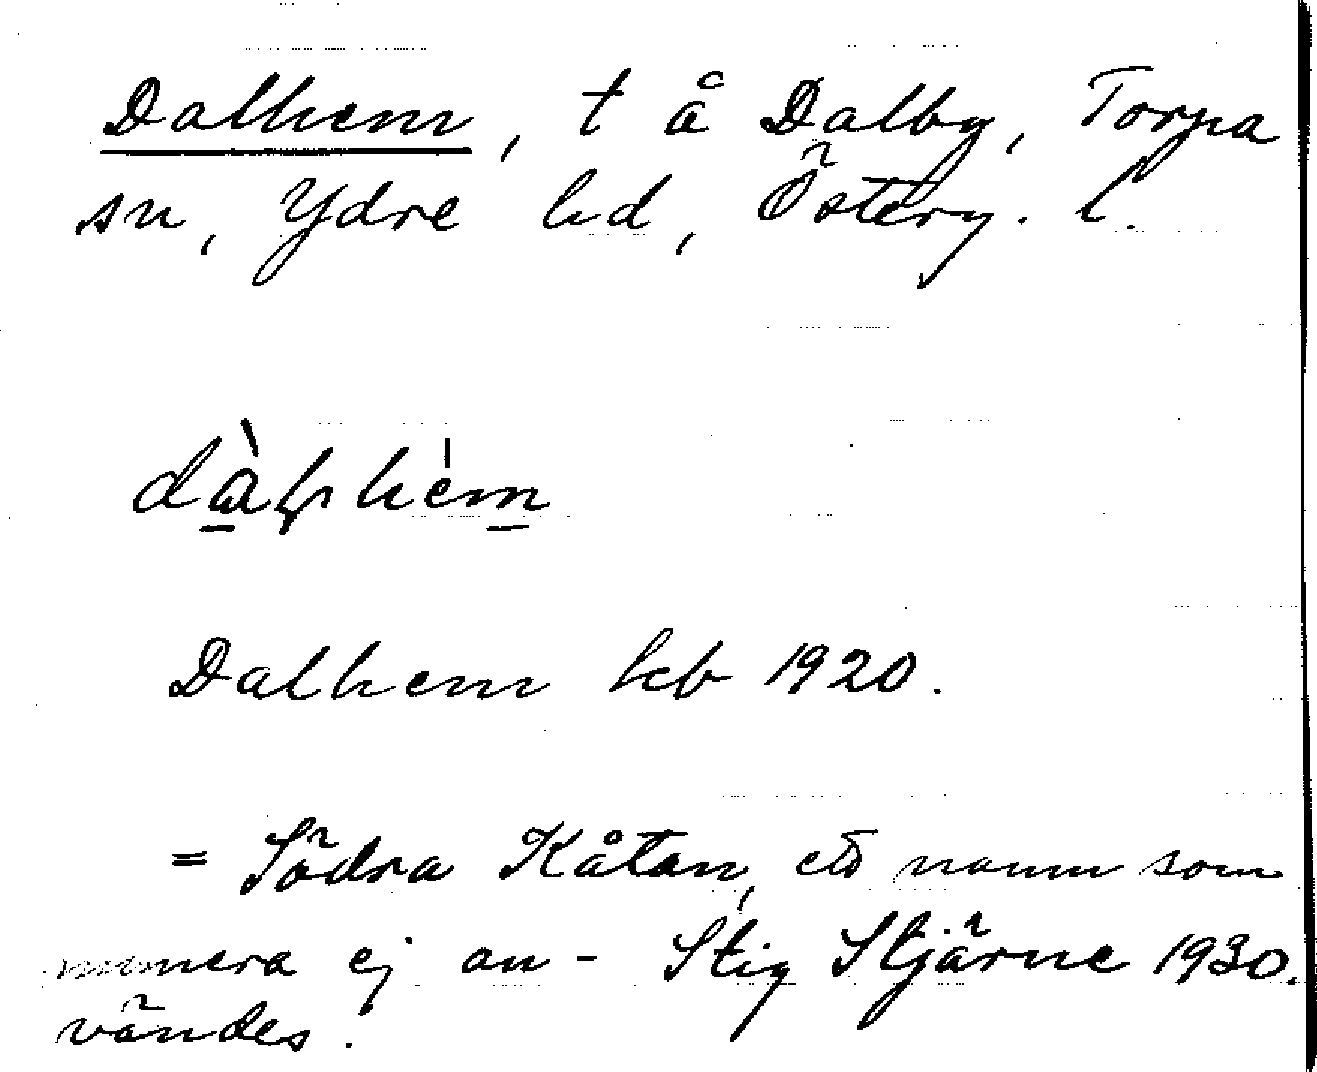 Dalhem, t å Dalby, Torpa
sn, Ydre hd, Österg. l.
dàlhém
Dalhem kb 1920.
= Södra Kåtan, ett namn som
numera ej an- Stig Stjärne 1930.
vändes.